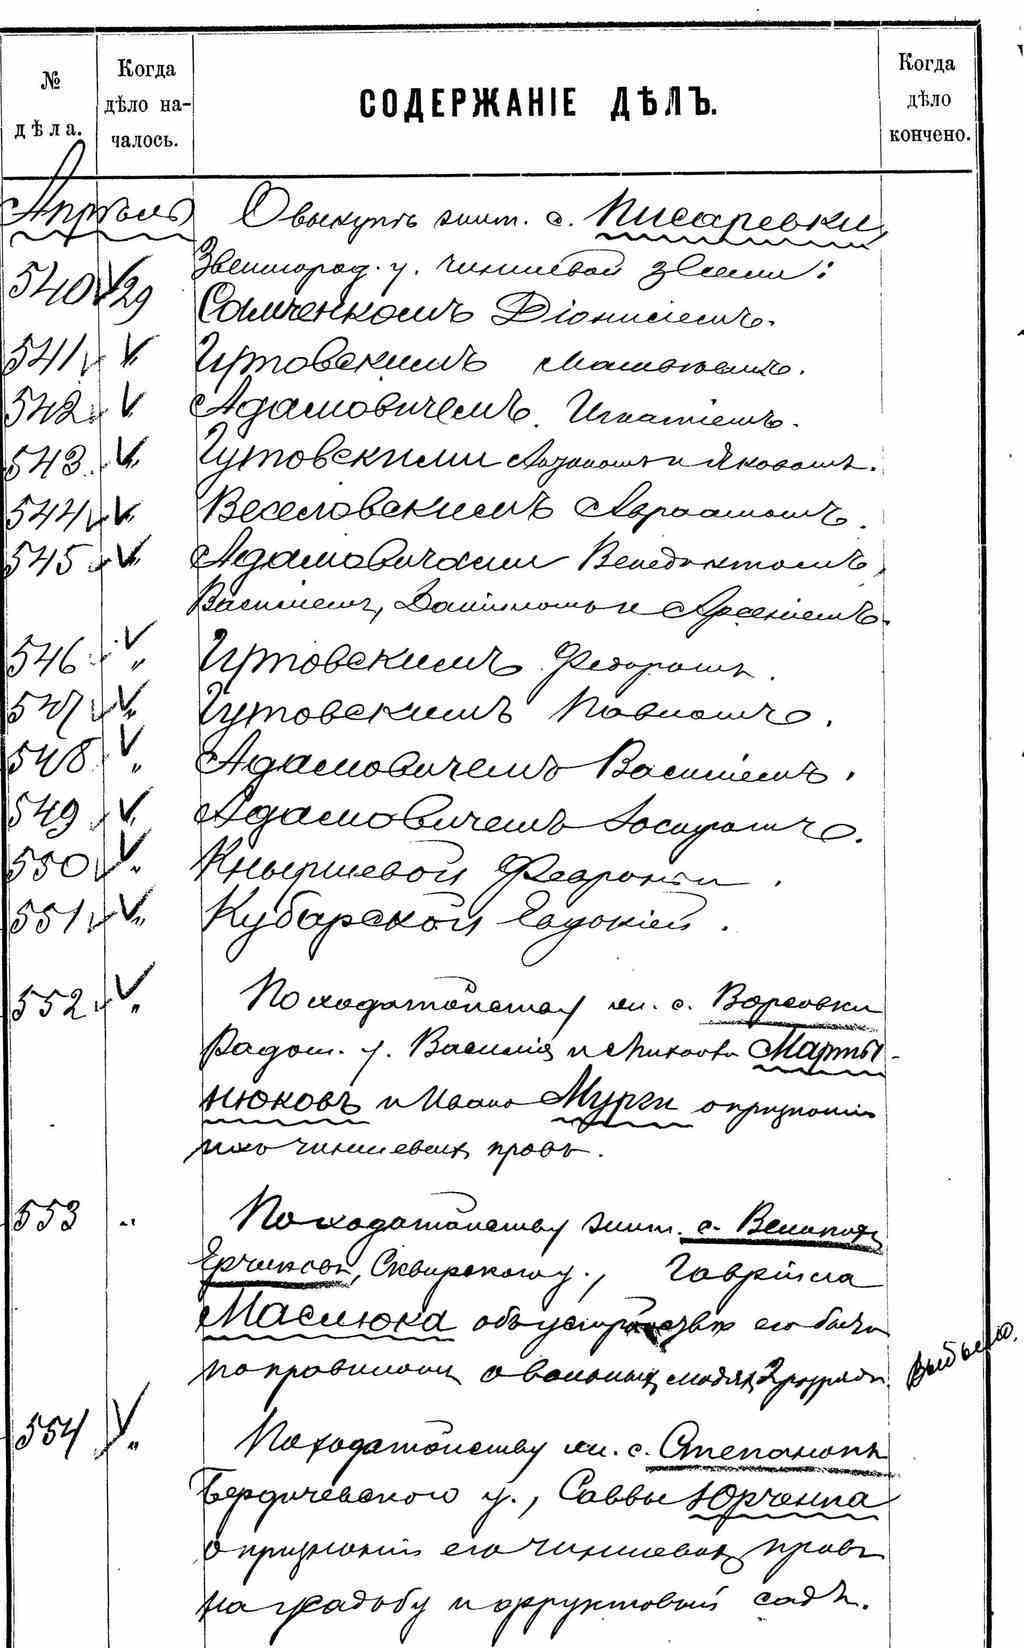 № дѣла.
Когда дѣло началось.
СОДЕРЖАНІЕ ДѢЛЪ.
Когда дѣло кончено.
Апрѣль
О выкупѣ жит. с. Писаревки,
Звенигород. у. чиншевой земли:
540 29 Самченкомъ Діонисіемъ.
541 " Гутовскимъ Матвѣемъ.
542 " Адамовичемъ Игнатіемъ.
543 " Гутовскими и Яковомъ.
544 " Веселовскимъ Авраамомъ.
545 " Адамовичами Венедиктомъ,
Василіемъ, Даніиломъ и Арсеніемъ.
546 " Гутовскимъ Федоромъ.
547 " Гутовскимъ Павломъ.
548 " Адамовичемъ Василіемъ.
549 " Адамовичемъ Іосифомъ.
550 " Кнышевой Февроніи.
551 " Кубарской Евдокіей.
552 " По ходатайству жи. с. Ворсовки
Радом. у. Василія и Якова Марты-
нюковъ и Ивана Мурги о признаніи
ихъ чиншевыхъ правъ.
553 " По ходатайству жит. с. Великихъ
Ерчиковъ, Сквирского у., Гавріила
Маслюка объ устройствѣ его быта
по правиламъ о вольныхъ людяхъ 2 разряда.
Выбыло.
554 " По ходатайству жи. с. Степанокъ
Бердичевского у., Саввы Юрченка
о признаніи его чиншевыхъ правъ
на усадьбу и фруктовый садъ.